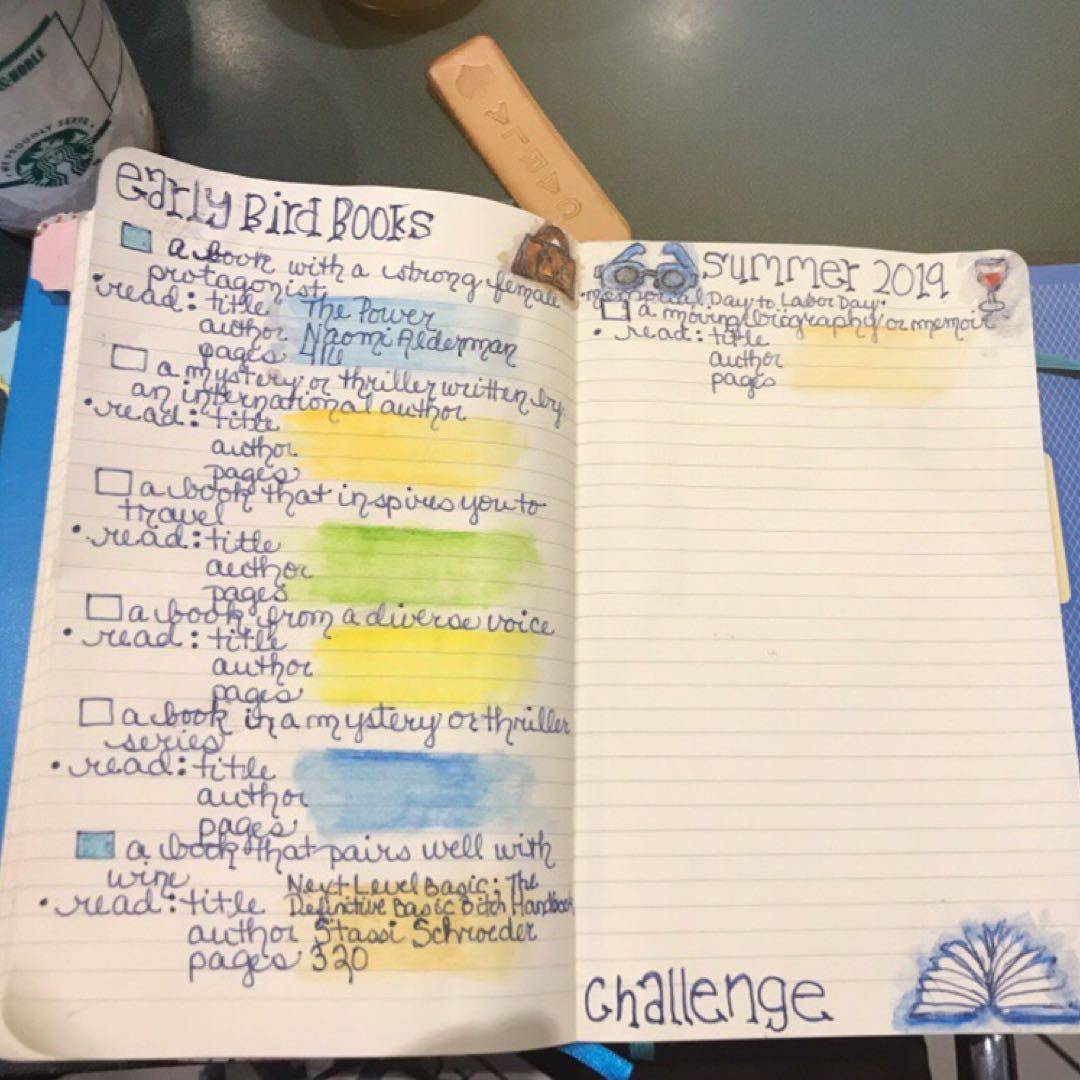 & NOBLE
WE PROUDLY SERVE
VLEVO
Early Bird Books
a book with a strong female
protagonist
• read: title The Power
author Naomi Alderman
pages 416
a mystery or thriller written by
an international author
• read: title
author
pages
a book that inspires you to
travel
• read: title
author
pages
a book from a diverse voice
• read: title
author
pages
a book in a mystery or thriller
series
• read: title
author
pages
a book that pairs well with
wine
Next Level Basic: The
• read: title Definitive Basic Bitch Handbook
author Stassi Schroeder
pages 320
Summer 2019
•Memorial Day to Labor Day•
a moving biography or memoir
• read: title
author
pages
Challenge